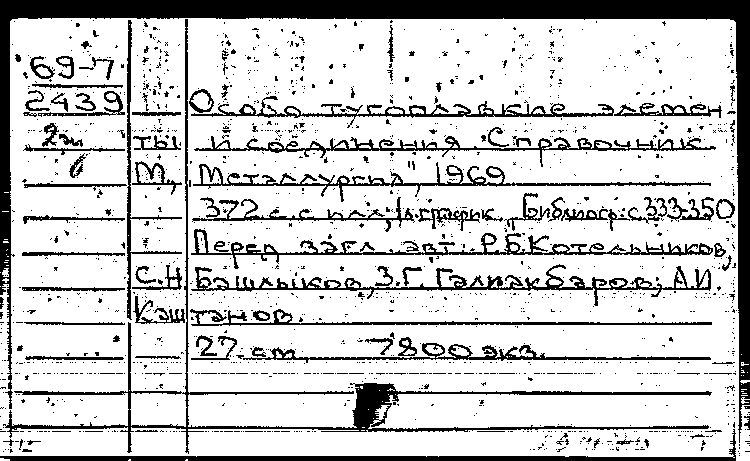 69-7
2439
Особо тугоплавкие элемен-
2 эк ты и соединения. Справочник.
М., "Металлургия", 1969
372 с. с илл; 1 л. график. Библиогр: с 333-350
Перед загл. авт: Р.Б. Котельников,
С.Н. Башлыков, З.Г. Галиакбаров, А.И.
Каштанов.
27 см 7800 экз.